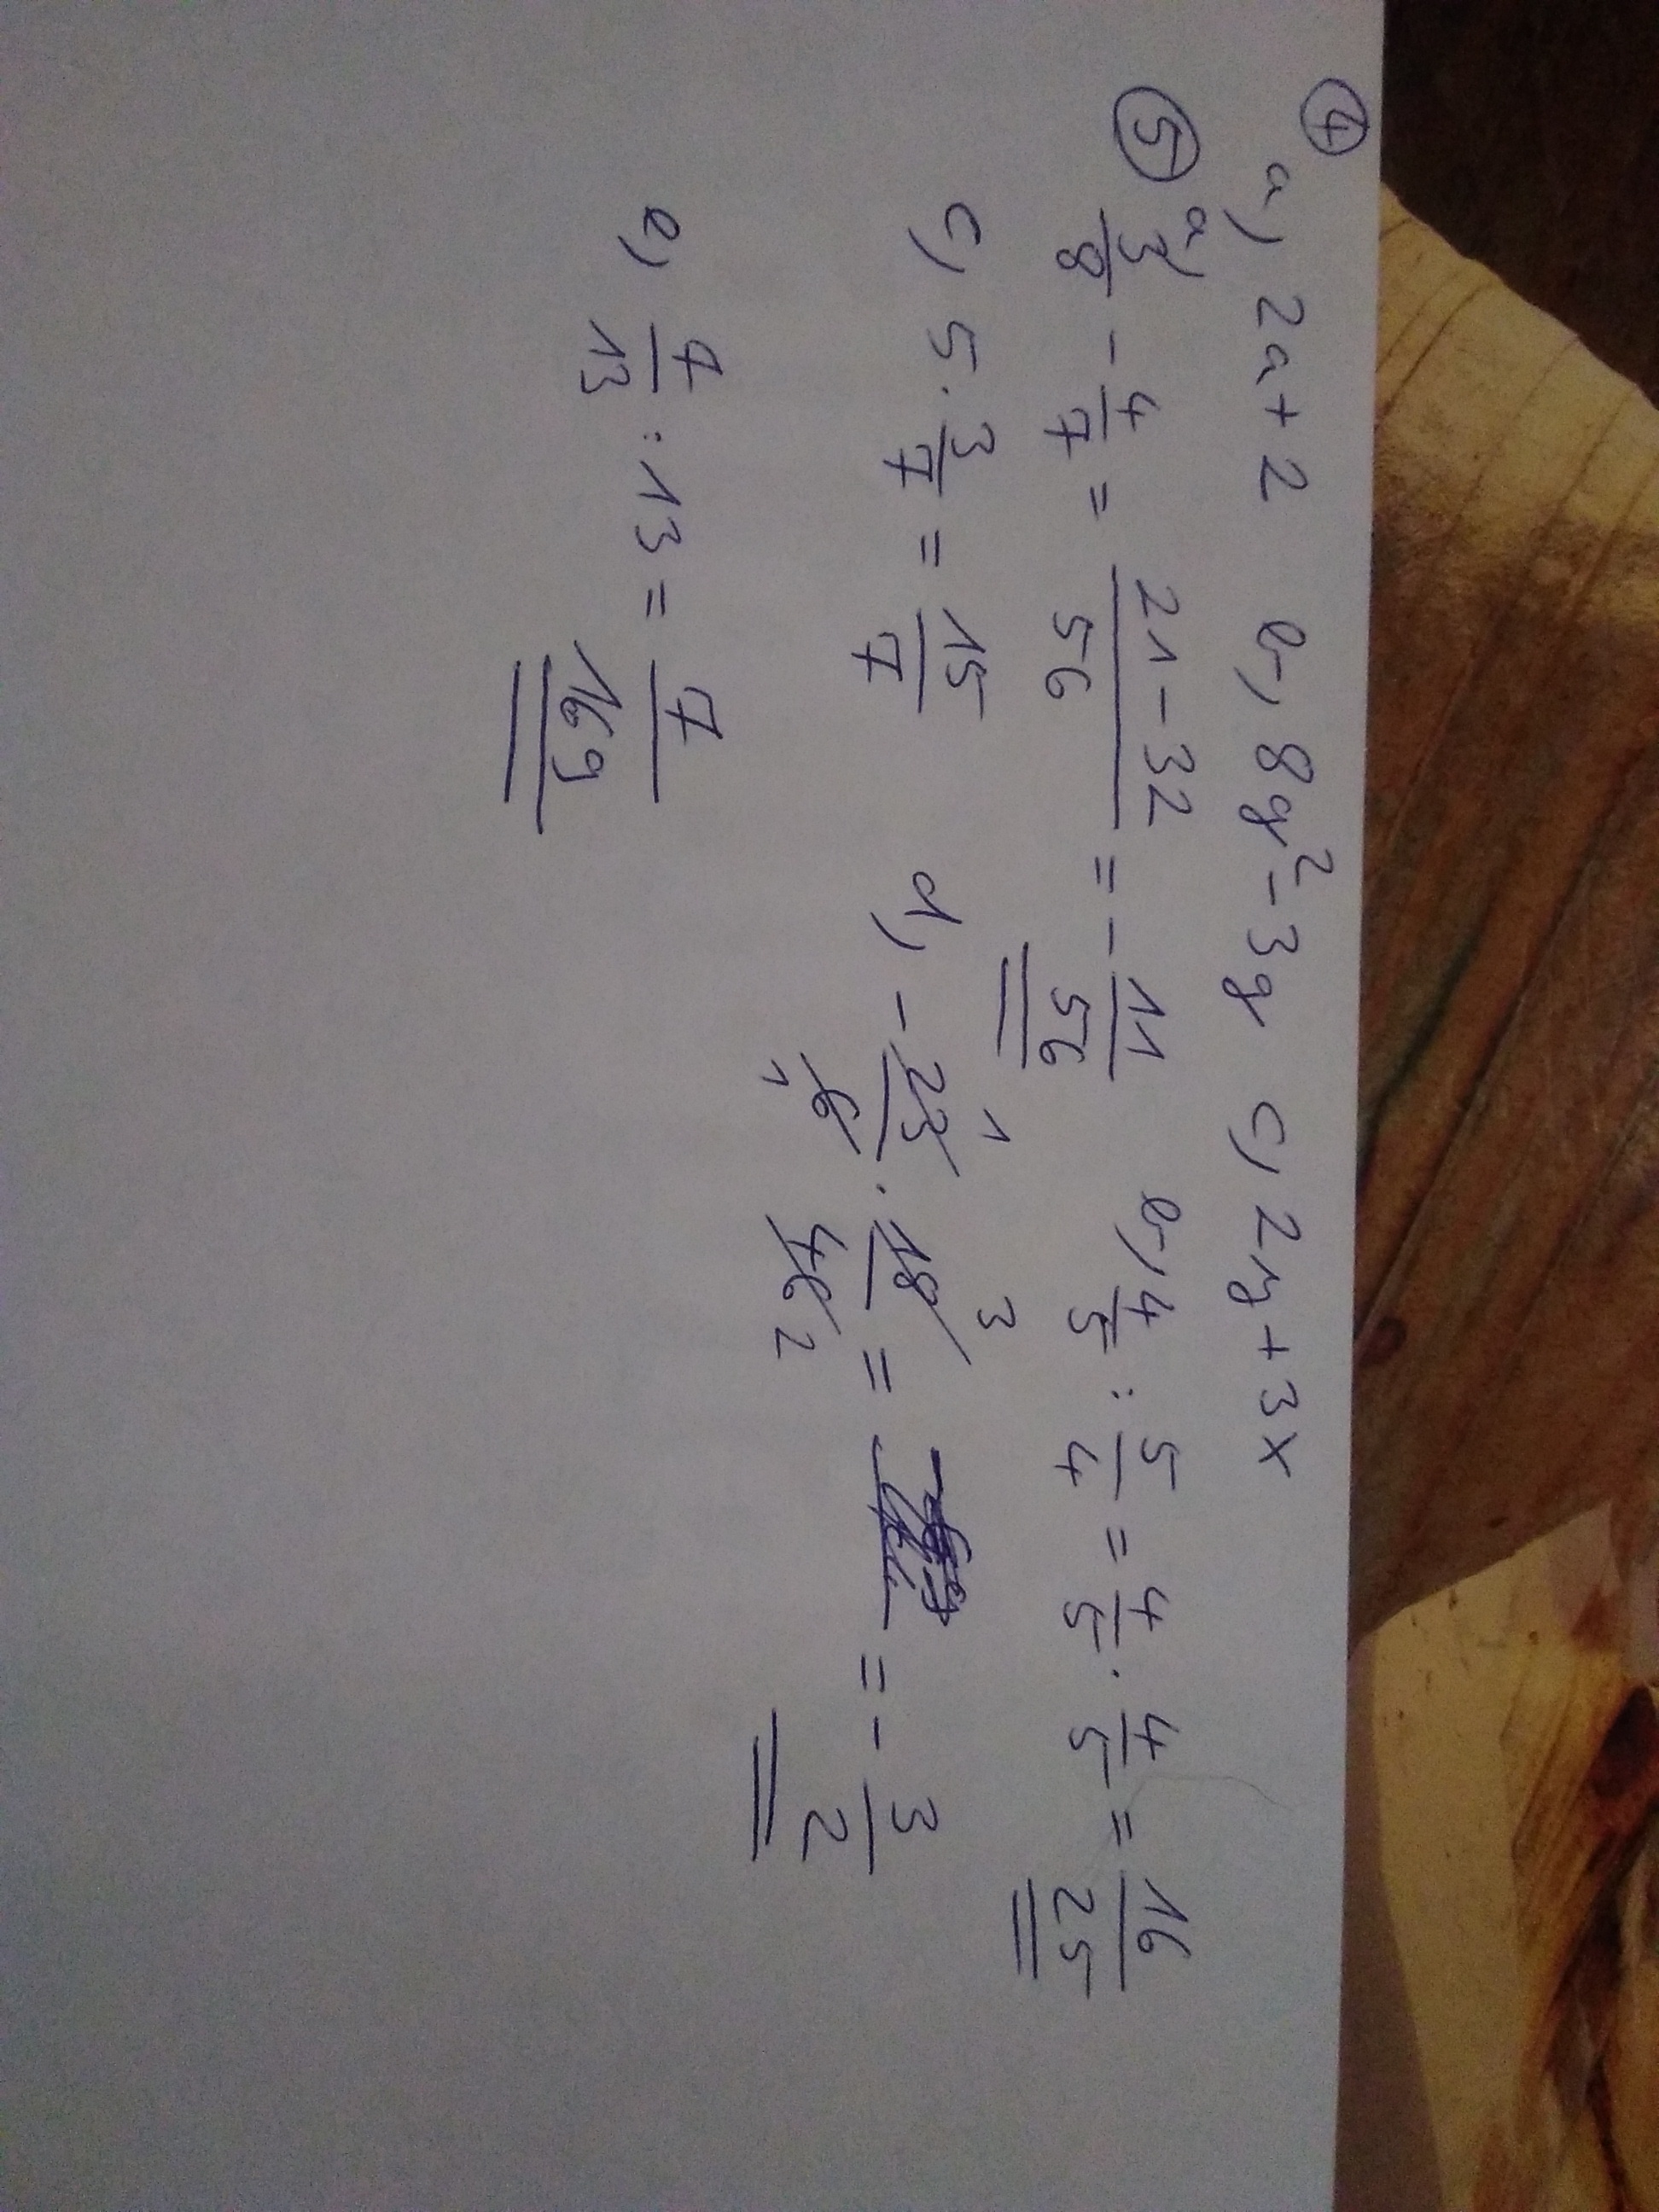 ④ a) 2a+2 b) 8y²-3y c) 2y+3x
⑤ a) 3/8 - 4/7 = (21-32)/56 = -11/56 b) 4/5 : 5/4 = 4/5 · 4/5 = 16/25
c) 5 · 3/7 = 15/7 d) -23/6 · 18/46 = = -3/2
1 3
1 2
e) 7/13 : 13 = 7/169